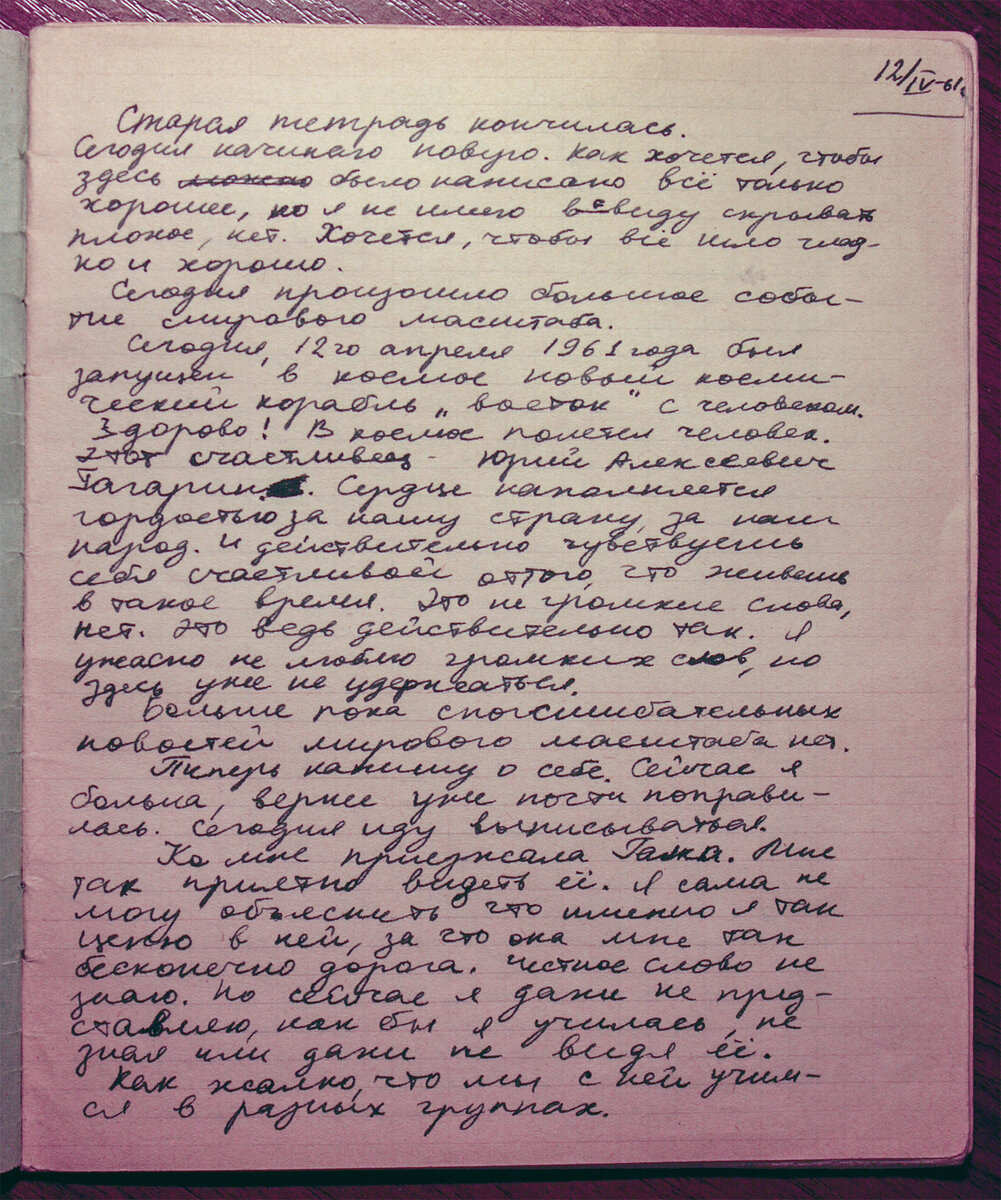 12/IV-61г.
Старая тетрадь кончилась.
Сегодня начинаю новую. Как хочется, чтобы
здесь можно было написано всё только
хорошее, но я не имею в виду скрывать
плохое, нет. Хочется, чтобы всё шло глад-
ко и хорошо.
Сегодня произошло большое собы-
тие мирового масштаба.
Сегодня, 12го апреля 1961 года был
запущен в космос новый косми-
ческий корабль „Восток" с человеком.
Здорово! В космос полетел человек.
Этот счастливец - Юрий Алексеевич
Гагарин. Сердце наполняется
гордостью за нашу страну, за наш
народ. И действительно чувствуешь
себя счастливой оттого, что живешь
в такое время. Это не громкие слова,
нет. Это ведь действительно так. Я
ужасно не люблю громких слов, но
здесь уже не удержаться.
Больше пока сногсшибательных
новостей мирового масштаба нет.
Теперь напишу о себе. Сейчас я
больна, вернее уже почти поправи-
лась. Сегодня иду выписываться.
Ко мне приезжала Галка. Мне
так приятно видеть её. Я сама не
могу объяснить что именно я так
ценю в ней, за что она мне так
бесконечно дорога. Честное слово не
знаю. Но сейчас я даже не пред-
ставляю, как бы я училась, не
зная или даже не видя её.
Как жалко, что мы с ней учим-
ся в разных группах.